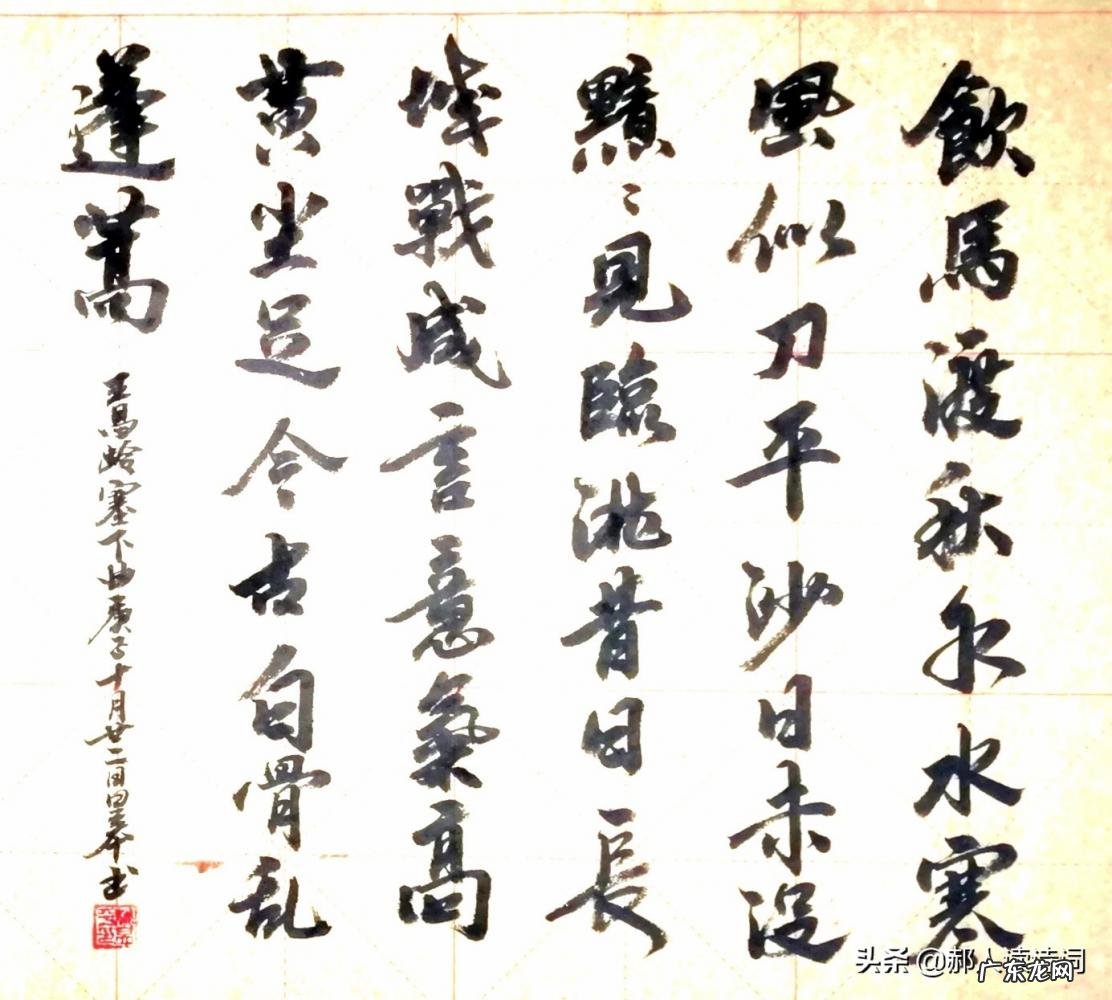 飲馬渡秋水水寒
風似刀平沙日未没
黯〻見臨洮昔日長
城戰咸言意氣高
黄尘足今古白骨乱
蓬蒿
王昌龄塞下曲庚子十月廿二日书
头条 @郝人
广东龙网